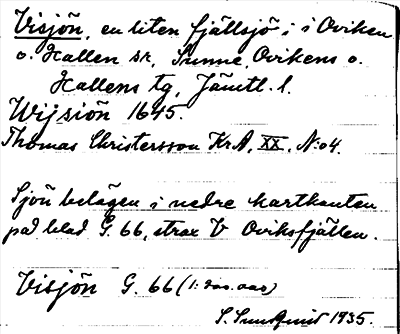 Visjön, en liten fjällsjö i i Oviken
o. Hallen sr, Sunne, Ovikens o.
Hallens tg, Jämtl. l.
Wijsiön 1645.
Thomas Christersson KrA, XX. N:o 4.
Sjön belägen i nedre kartkanten
på blad G. 66, strax V Oviksfjällen.
Visjön G. 66 (1:200.000)
S. Sundqvist 1935.